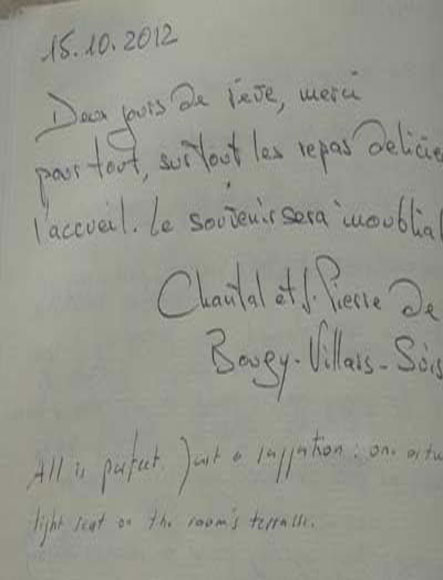 15.10.2012
Deux jours de rève, merci
pour tout, surtout les repas delicie
l'accueil. Le souvenir sera inoublia
Chantal et J. Pierre De
Bougy-Villars-Suis
All is perfect. Just a suggestion: one
light seat on the room's terrasse.